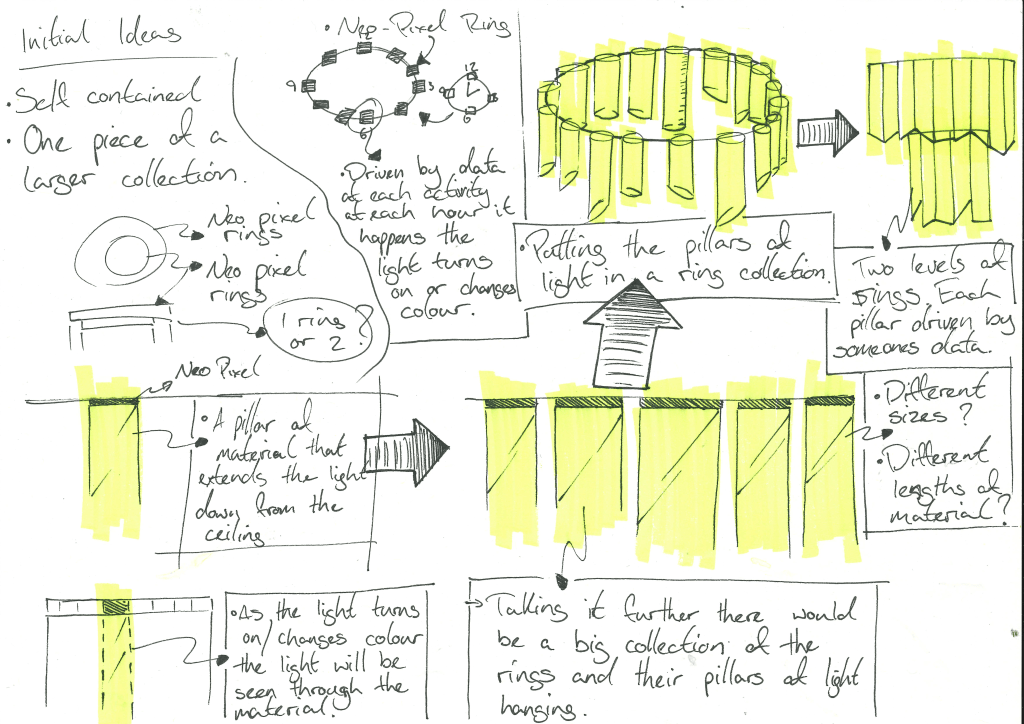 Initial Ideas
• Self contained
• One piece of a
larger collection.
Neo pixel
rings
Neo pixel
rings
1 ring
or 2?
• Neo-Pixel Ring
12
9
3
6
12
9
3
6
• Driven by data
at each activity
at each hour it
happens the
light turns
on or changes
colour.
• Putting the pillars of
light in a ring collection.
Two levels of
rings. Each
pillar driven by
someones data.
• Different
sizes?
• Different
lengths of
material?
Neo Pixel
• A pillar of
material that
extends the light
down from the
ceiling
• As the light turns
on/changes colour
the light will be
seen through the
material.
Talking it further there would
be a big collection of the
rings and their pillars of light
hanging.